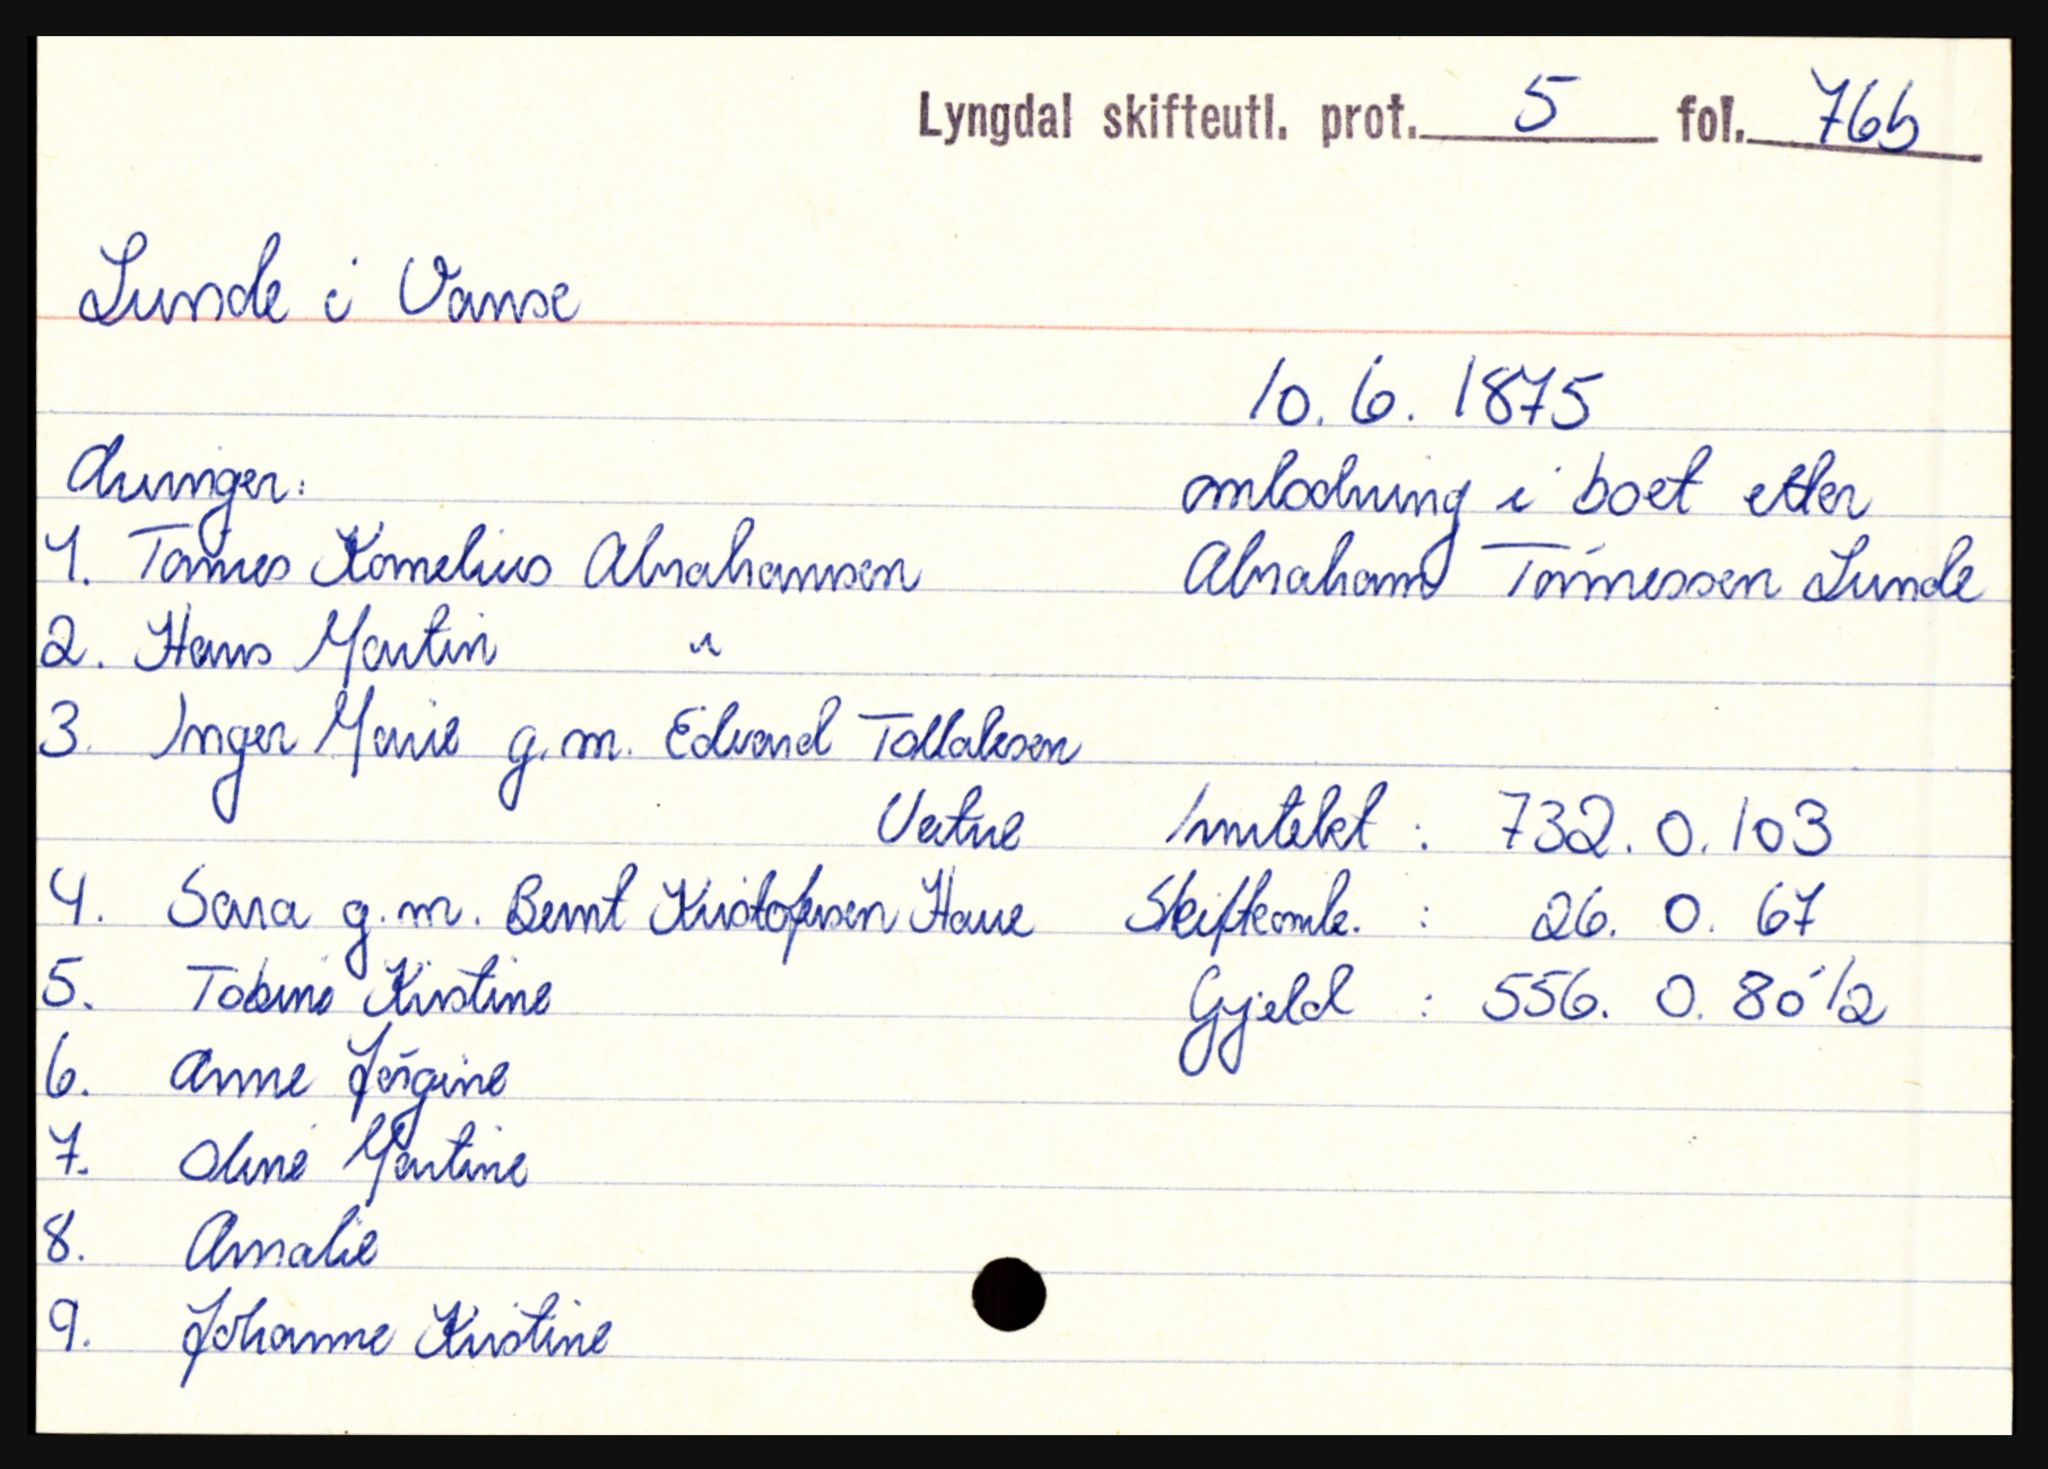 Lyngdal skifteutl. prot. 5 fol. 76b
Lunde i Vanse
10.6.1875
Arvinger:
omlodning i boet etter
1. Tønnes Kornelius Abrahamsen
Abraham Tønnessen Lunde
2. Hans Martin "
3. Inger Marie g.m. Edvard Tollaksen
Vatne
Inntekt : 732.0.103
4. Sara g.m. Bernt Kristofersen Haue
Skifteomk. : 26.0.67
5. Tobine Kristine
Gjeld : 556.0.80 1/2
6. Anne Jørgine
7. Oline Martine
8. Amalie
9. Johanne Kristine